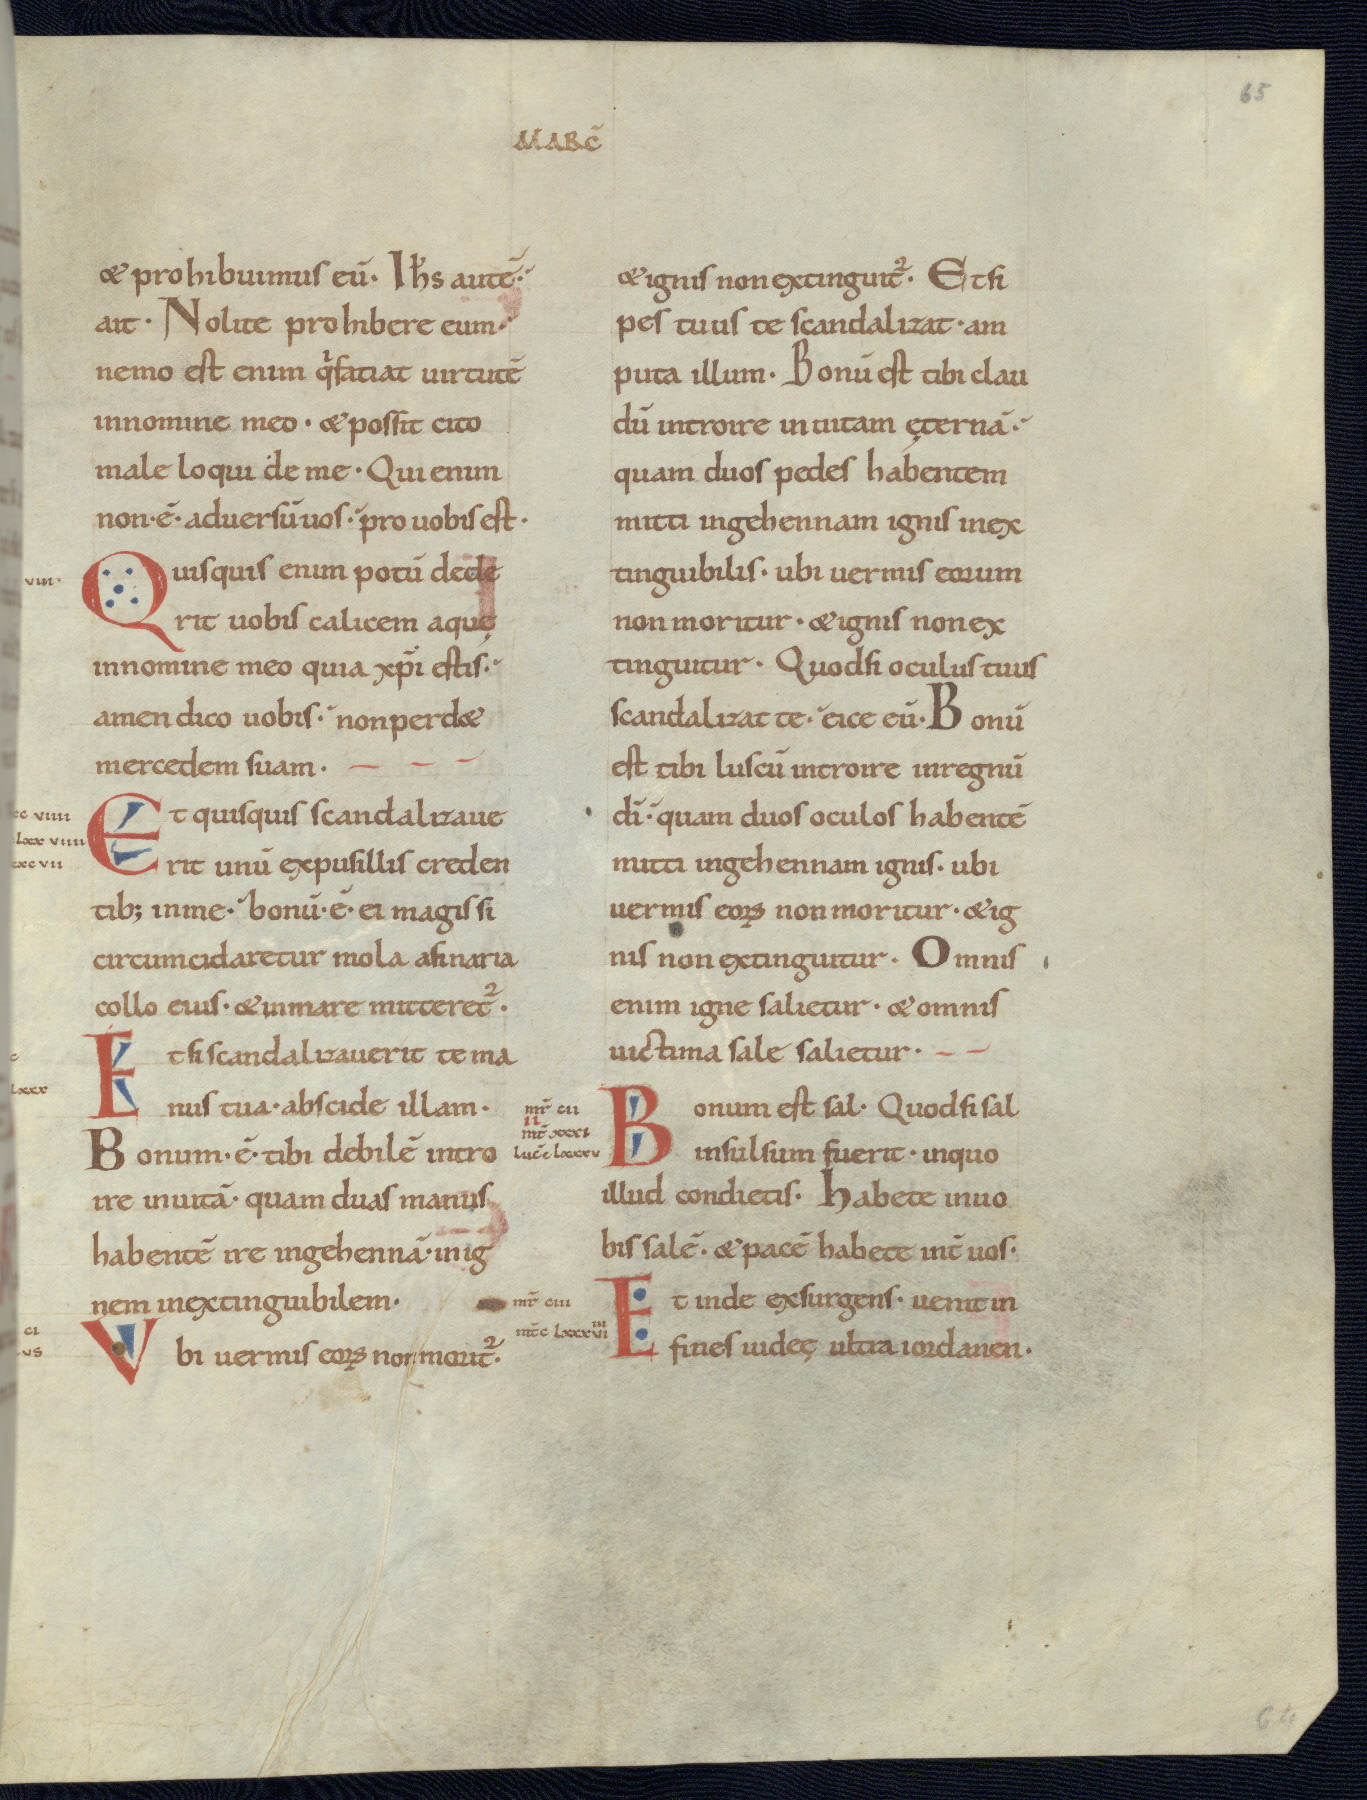 65
MARC̄
& prohibuimus eū. Ihs̄ autē.
ait. Nolite prohibere eum.
nemo est enim qͥ faciat uirtutē
innomine meo. & possit cito
male loqui de me. Qui enim
non.ē. aduersū uos. pro uobis est.
viii.
Quisquis enim potū dede
rit uobis calicem aquę
innomine meo quia xp̄i estis.
amen dico uobis. non perd&
mercedem suam.
Et quisquis scandalizaue
rit unū expusillis creden
tib; inme. bonū.ē. ei magis si
circumcidaretur mola asinaria
collo eius. & inmare mitteret᷑.
Et si scandalizauerit te ma
nus tua. abscide illam.
Bonum.ē. tibi debilē intro
ire inuitā. quam duas manus
habentē ire ingehennā. inig
nem inextinguibilem.
Vbi uermis eoꝝ non morit᷑.
& ignis non extinguit᷑. Et si
pes tuus te scandalizat. am
puta illum. Bonū est tibi clau
dū introire inuitam ęternā.
quam duos pedes habentem
mitti ingehennam ignis inex
tinguibilis. ubi uermis eorum
non moritur. & ignis non ex
tinguitur. Quodsi oculus tuus
scandalizat te. eice eū. Bonū
est tibi luscū introire inregnū
dī. quam duos oculos habentē
mitti ingehennam ignis. ubi
uermis eoꝝ non moritur. & ig
nis non extinguitur. Omnis
enim igne salietur. & omnis
uictima sale salietur.
mr̄ cii
ii
mt̄ xxxi
luc̄ clxxxv
Bonum est sal. Quodsi sal
insulsum fuerit. inquo
illud condietis. Habete inuo
bis salē. & pacē habete int̄ uos.
mr̄ ciii
mt̄ clxxxviiii
Et inde exsurgens. uenit in
fines iudeę ultra iordanen.